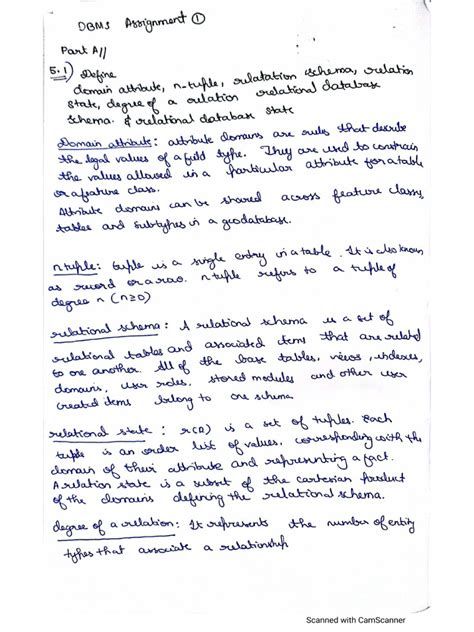 DBMS Assignment ①
Part A//
5.1) Define
domain attribute, n-tuple, relatation schema, relation
state, degree of a relation relational database
schema. & relational database state
Domain attribute: attribute domains are rules that describe
the legal values of a field type. They are used to constrain
the values allowed in a particular attribute for a table
or a feature class.
Attribute domains can be shared across feature classy,
tables and subtypes in a geodatabase.
n tuple: tuple is a single entry in a table. It is also known
as record or a rao. n tuple refers to a tuple of
degree n (n≥0)
relational schema: A relational schema is a set of
relational tables and associated items that are related
to one another. All of the base tables, views, indexes,
domains, user roles, stored modules and other user
created items belong to one schema.
relational state: r(R) is a set of tuples. Each
tuple is an order list of values, corresponding with the
domain of their attribute and representing a fact.
A relation state is a subset of the cartesian product
of the domains defining the relational schema.
degree of a relation: It represents the number of entity
types that associate a relationship
Scanned with CamScanner